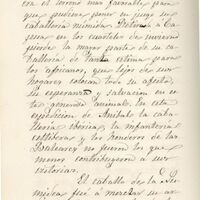 era el terreno mas favorable para
que pudiera poner en juego su
caballeria númida. Detenido a Ca-
pua en los cuarteles de invierno
pierde la mayor parte de su ca-
balleria de tanta estima para
los africanos, que lejos de sus
hogares colocan todo su afecto,
su esperanza y salvacion en
este generoso animal. En esta
expedicion de Anibal la caba-
lleria iberica, la infanteria
celtibera y los honderos de las
Baleares no fueron los que
menos contribuyeron a sus
victorias.
El caballo de la Nu-
midia fué a mezclar su